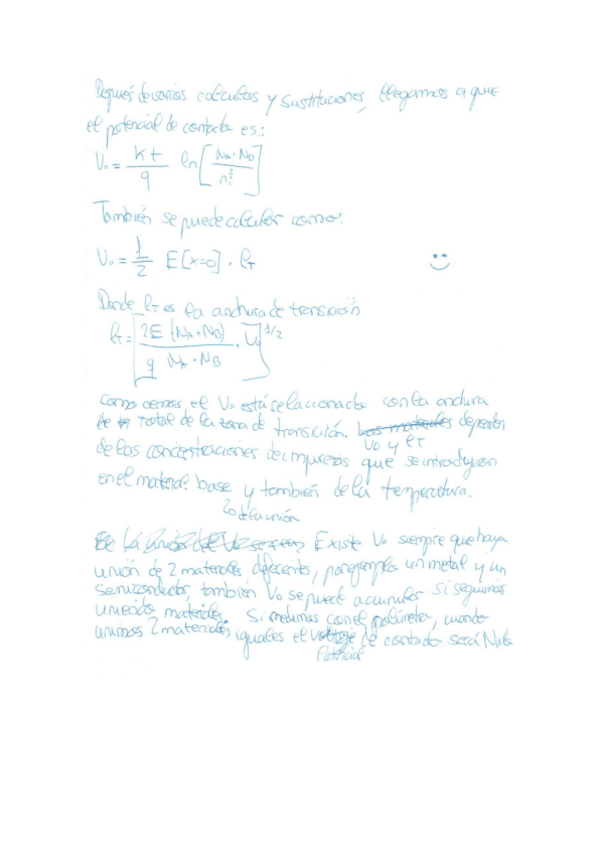 Después de varios calculos y sustituciones, llegamos a que
el potencial de contacto es:
V₀ = Kt/q ln[Na·ND/ni²]
También se puede calcular como:
V₀ = 1/2 E[x=0]·lT
Donde lT es la anchura de transición
lT = [2E/q (NA+NB)/(NA·NB)·V₀]^1/2
Como vemos el V₀ está relacionado con la anchura
total de la zona de transición. Los materiales dependen
V₀ y lT
de las concentraciones de impurezas que se introduzcan
en el material base y también de la temperatura.
de la unión
Existe V₀ siempre que haya
unión de 2 materiales diferentes, por ejemplo un metal y un
semiconductor, también V₀ se puede acumular si seguimos
uniendo materiales. Si medimos con el polímetro, cuando
unimos 2 materiales iguales el voltaje de contacto será Nulo
Potencial